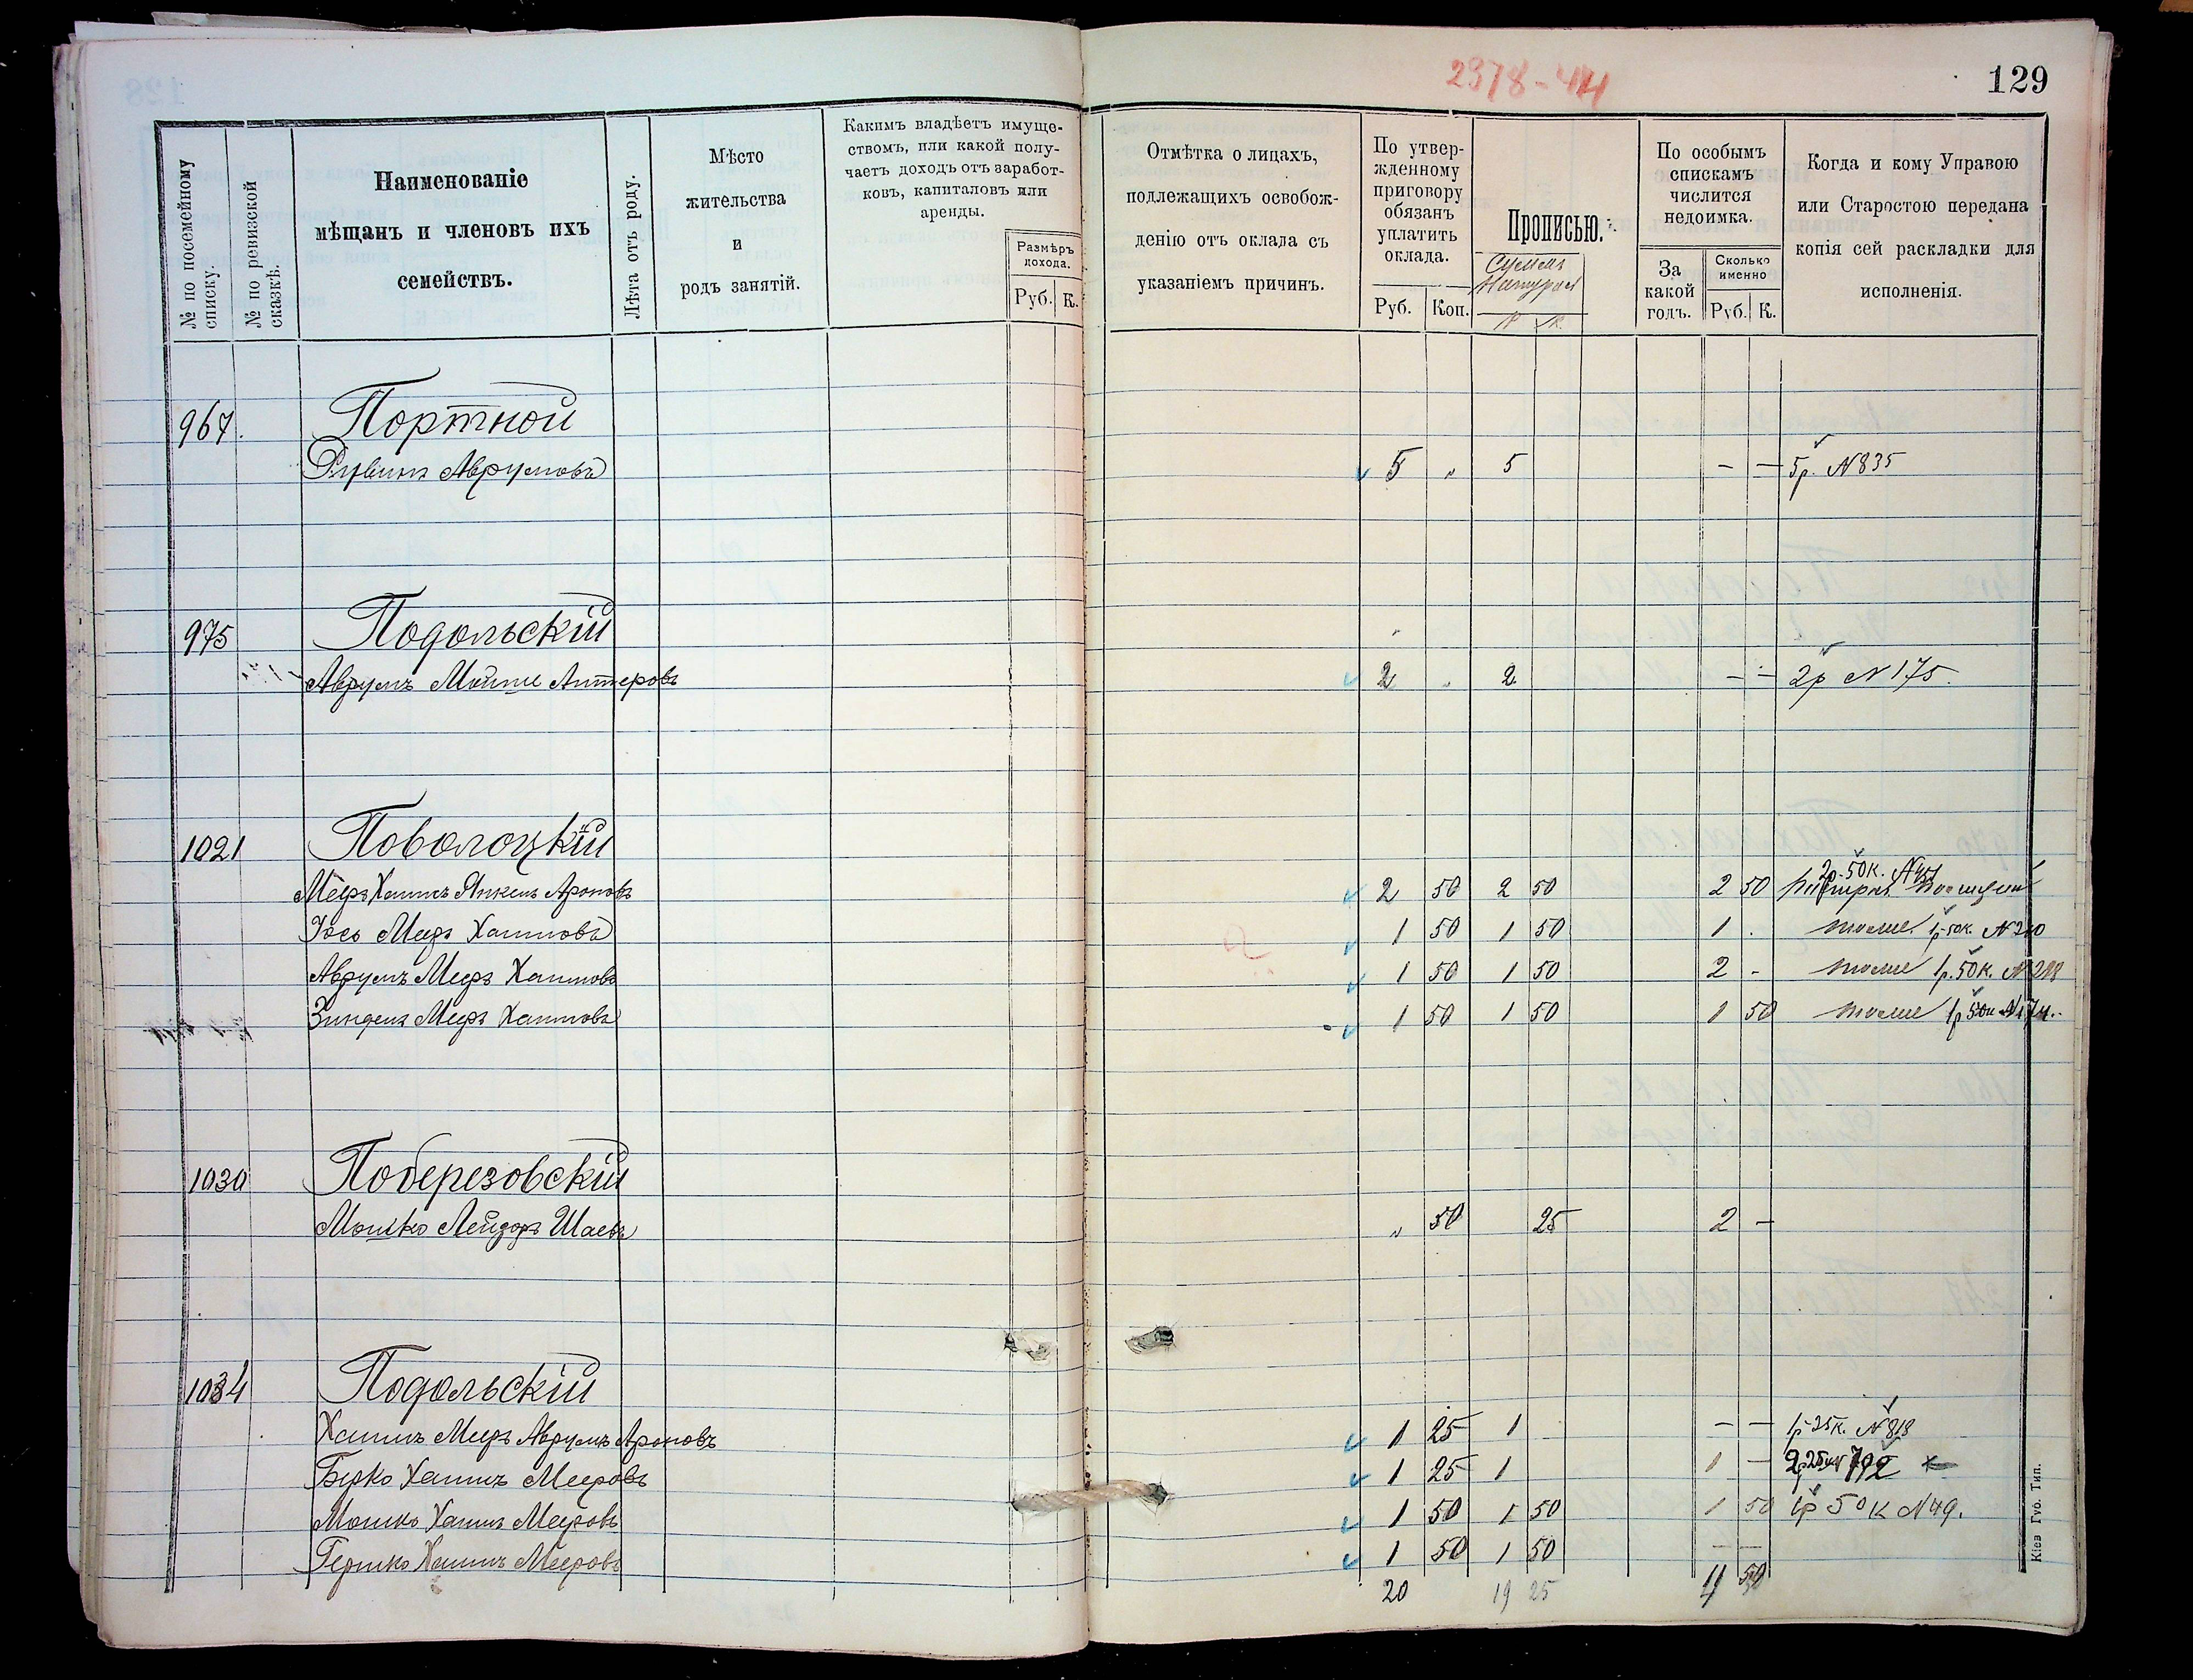 2378-44
129
№ по посемейному списку.
№ по ревизской сказкѣ.
Наименованіе
мѣщанъ и членовъ ихъ
семействъ.
Лѣта отъ роду.
Мѣсто
жительства
и
родъ занятій.
Какимъ владѣетъ имуще-
ствомъ, или какой полу-
чаетъ доходъ отъ заработ-
ковъ, капиталовъ или
аренды.
Размѣръ
дохода.
Руб. К.
Отмѣтка о лицахъ,
подлежащихъ освобож-
денію отъ оклада съ
указаніемъ причинъ.
По утвер-
жденному
приговору
обязанъ
уплатить
оклада.
Руб. Коп.
Прописью.
По особымъ
спискамъ
числится
недоимка.
За
какой
годъ.
Сколько
именно
Руб. К.
Когда и кому Управою
или Старостою передана
копія сей раскладки для
исполненія.
967. Портной
Рувинъ Аврумовъ 5 " 5 — — 5р. N835
975 Подольскій
Аврумъ Мойше Антеровъ 2 " 2 — — 2р N175.
1021 Поволоцкій
2р-50к.
Меръ Хаимъ Янкель Ароновъ 2 50 2 50 2 50
Іось Мееръ Хаимовъ 1 50 1 50 1 . тоже 1р-50к. N210
Аврумъ Мееръ Хаимовъ 1 50 1 50 2 - тоже 1р.50к. N218
Зиндель Мееръ Хаимовъ 1 50 1 50 1 50 тоже 1р 50к N174.
1030 Поберезовскій
Мошко Лейзоръ Шаевъ " 50 25 2 —
1034 Подольскій
Хаимъ Мееръ Аврумъ Ароновъ 1 25 1 — — 1р-25к. N818
Берко Хаимъ Мееровъ 1 25 1 1 — 792
Мошко Хаимъ Мееровъ 1 50 1 50 1 50 1р 50к N49.
Гершко Хаимъ Мееровъ 1 50 1 50 — —
20 19 25 50
Кіев Губ. Тип.